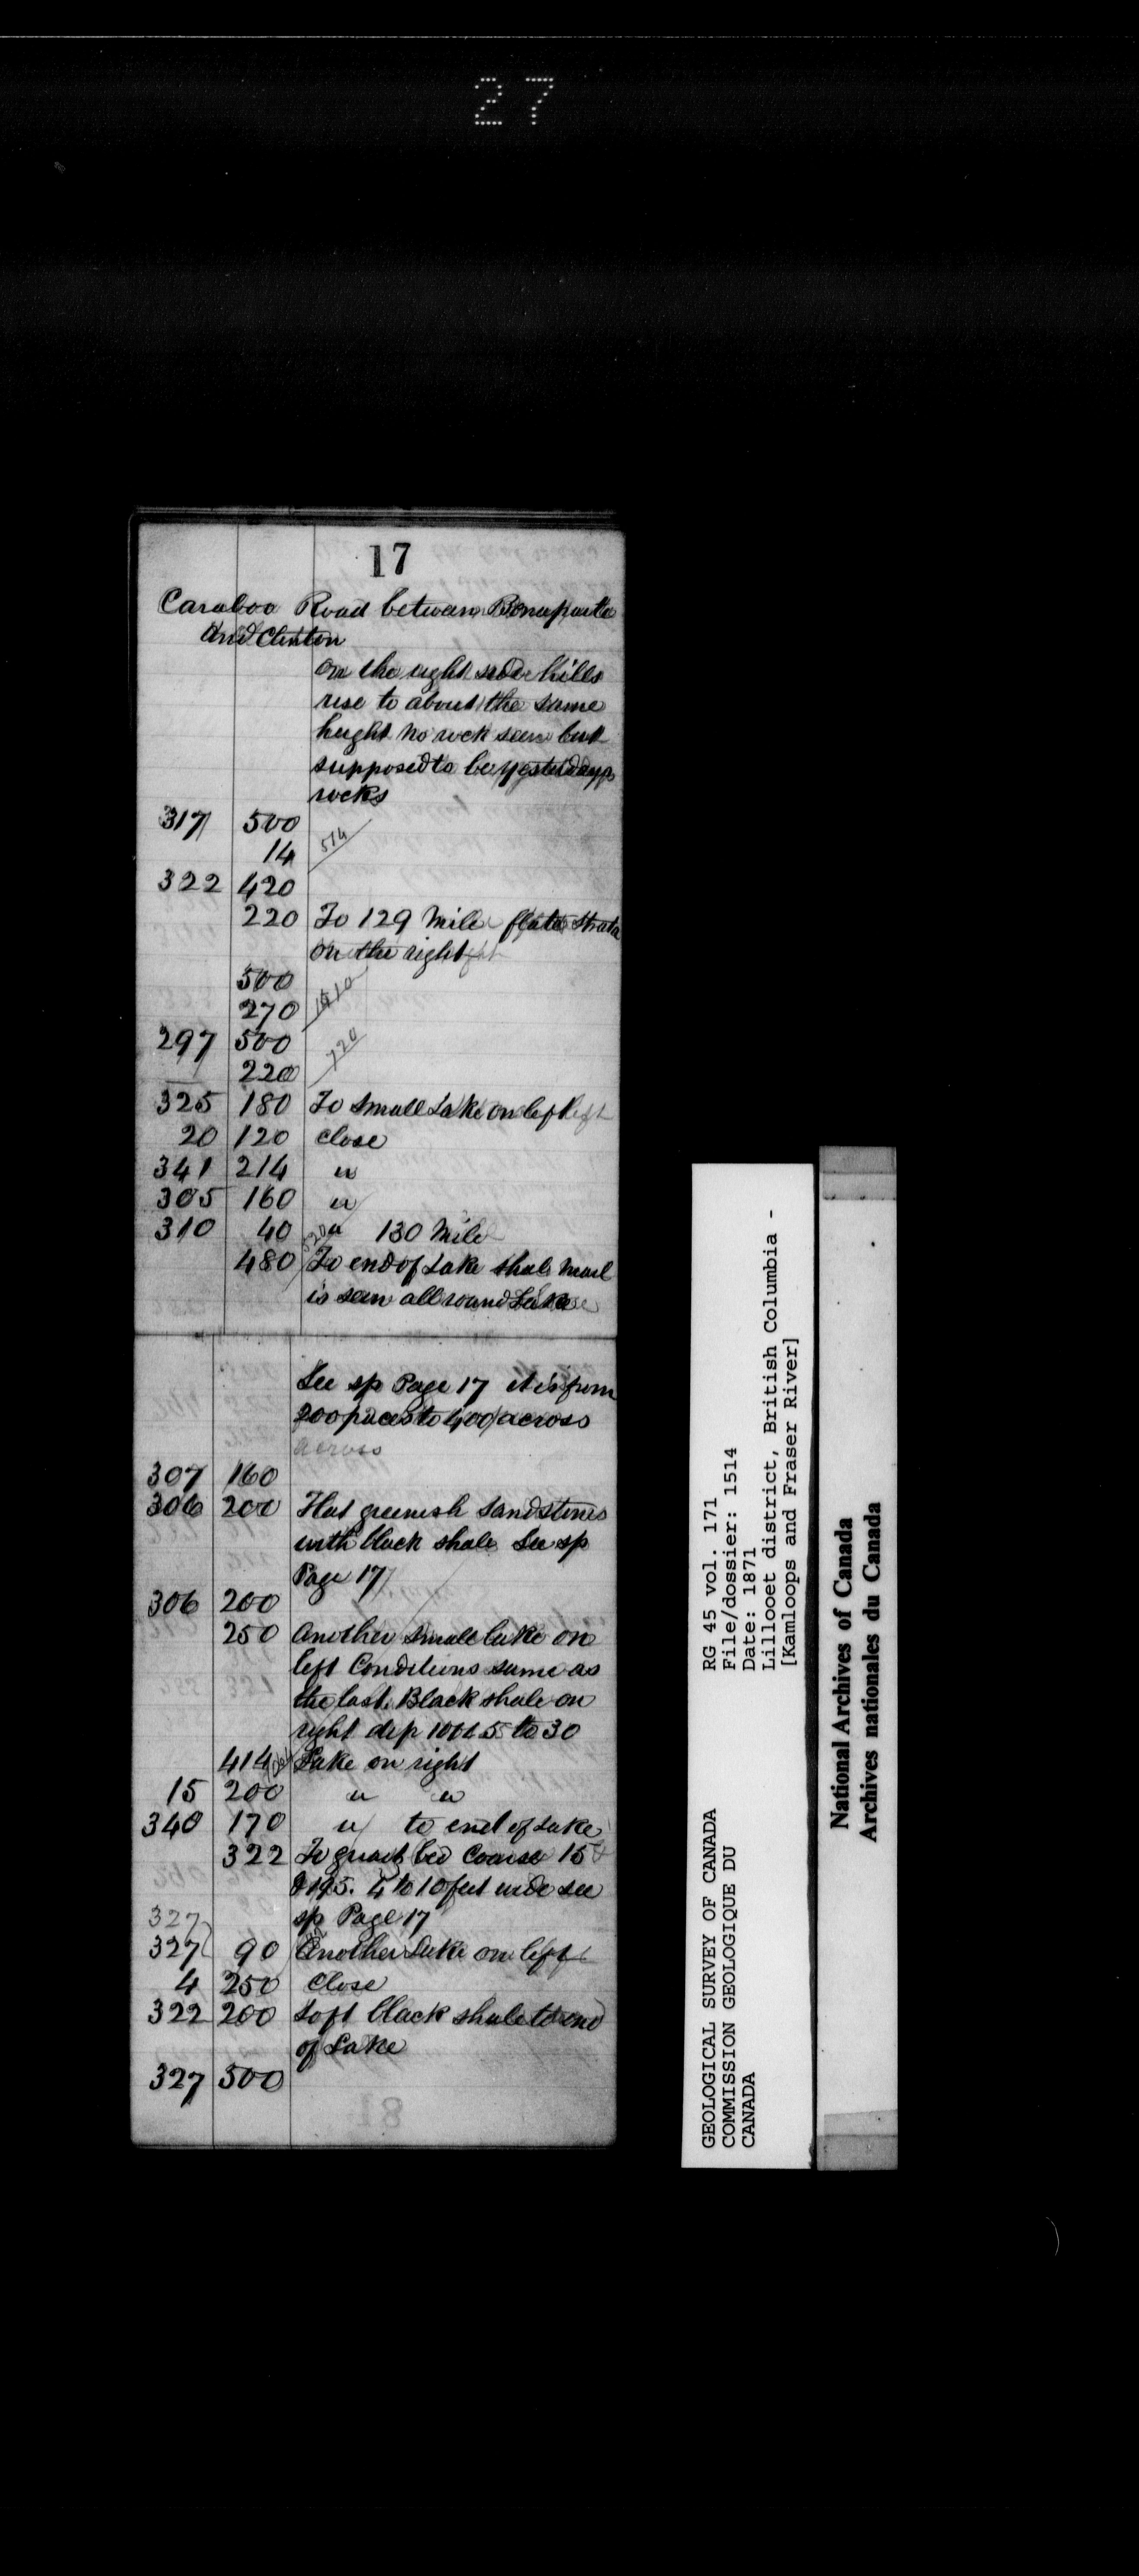 27
17
Caraboo Road between Bonaparte
and Clinton
on the right side hills
rise to about the same
height no rock seen but
supposed to be yesterdays
rocks
317 500
14 514
322 420
220 To 129 Mile flat strata
on the right
500
270
297 500
220 720
325 180 To small Lake on left
20 120 close
341 214 "
305 160 "
310 40 " 130 Mile
480 To end of Lake shell marl
is seen all round Lake
See sp Page 17 it is from
200 paces to 400 across
across
307 160
306 200 Flat greenish sandstones
with black shale See sp
Page 17
306 200
250 Another small lake on
left Conditions same as
the last. Black shale on
right dip 100 5 to 30
414 Lake on right
15 200 " "
340 170 " to end of Lake
322 To quartz bed Course 15
& 195. 4 to 10 feet wide see
327 sp Page 17
327 90 Another Lake on left
4 250 Close
322 200 Soft black shale to end
of Lake
327 500
GEOLOGICAL SURVEY OF CANADA
COMMISSION GEOLOGIQUE DU
CANADA
RG 45 vol. 171
File/dossier: 1514
Date: 1871
Lillooet district, British Columbia -
[Kamloops and Fraser River]
National Archives of Canada
Archives nationales du Canada